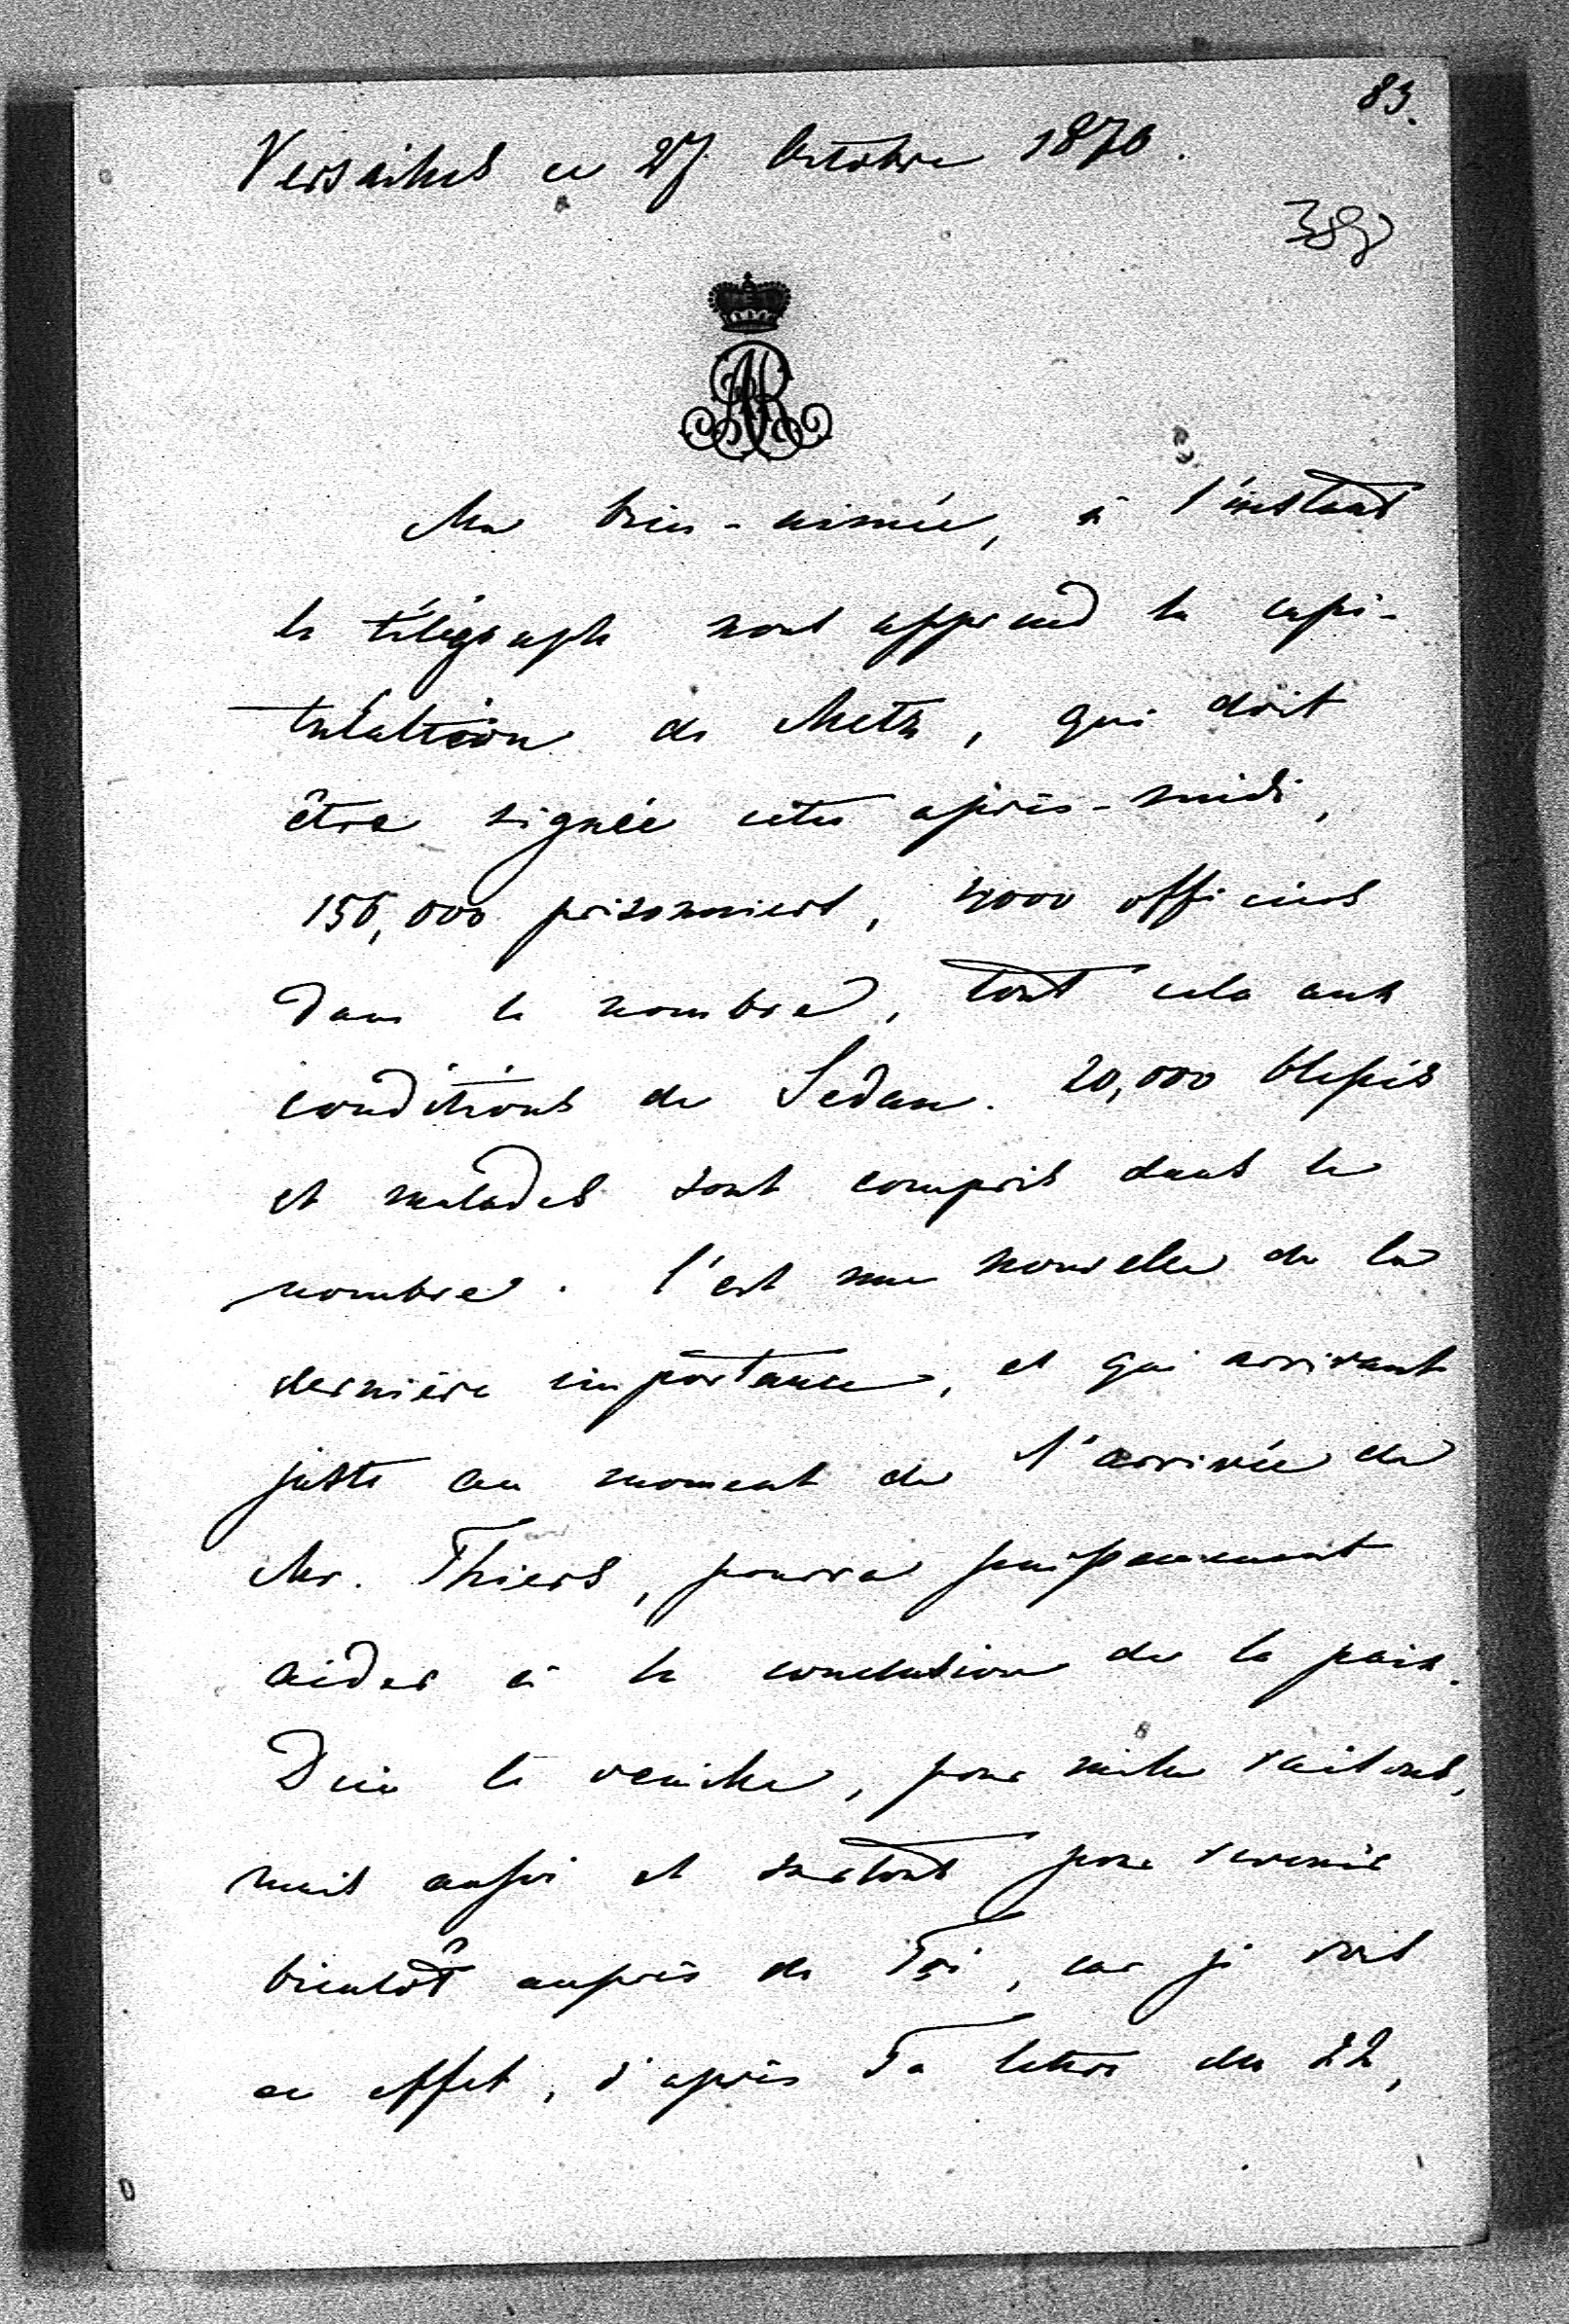 83.
Versailles ce 27 Octobre 1870.
388
AR
Ma bien-aimée, à l'instant
le télégraphe nous apprend la capi-
tulation de Metz, qui doit
être signée cette après-midi,
150,000 prisonniers, 4000 officiers
dans le nombre, tout cela aux
conditions de Sedan. 20,000 blessés
et malades sont compris dans le
nombre. C'est une nouvelle de la
dernière importance, et qui arrivant
juste au moment de l'arrivée de
Mr. Thiers, pourra puissamment
aider à la conclusion de la paix.
Dieu le veuille, pour mille raisons,
mais aussi et surtout pour revenir
bientôt auprès de Toi, car je vois
en effet, d'après Ta lettre du 22,